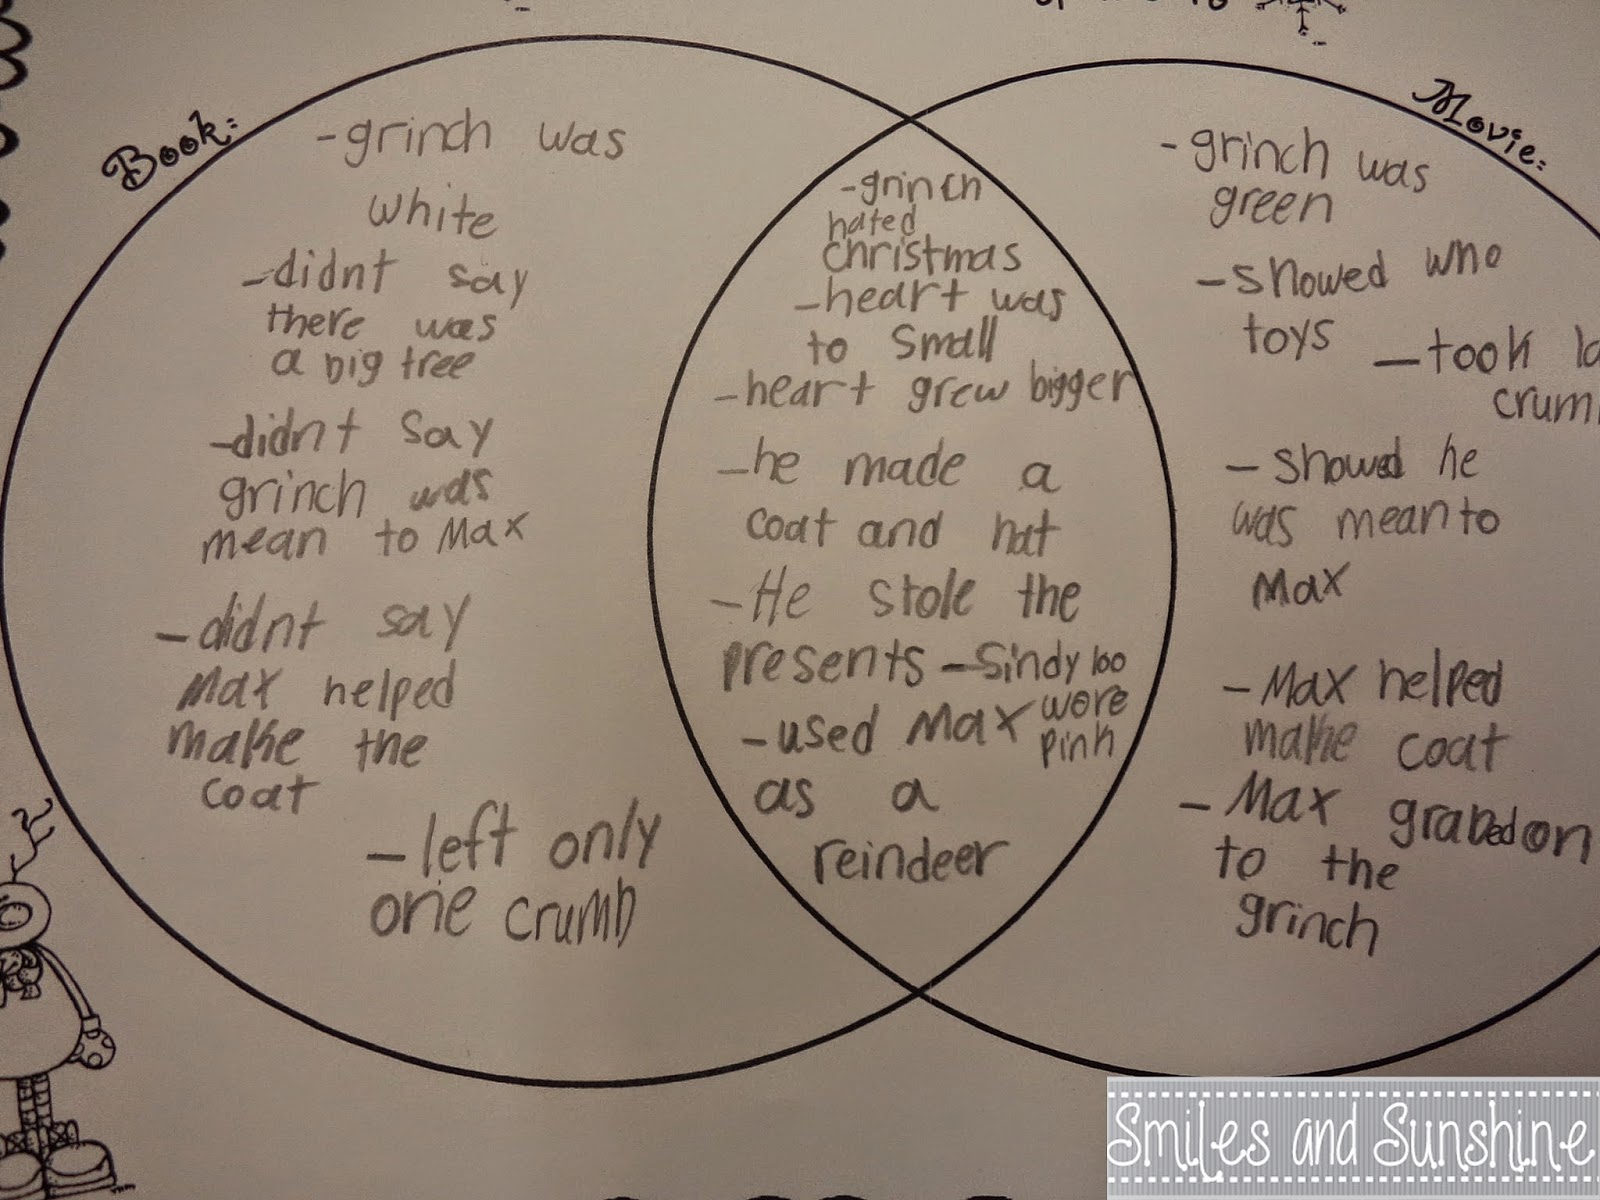 Book:
-grinch was
white
-didnt say
there was
a big tree
-didnt say
grinch was
mean to Max
-didnt say
Max helped
make the
coat
-left only
one crumb
-grinch
hated
christmas
-heart was
to small
-heart grew bigger
-he made a
coat and hat
-He stole the
presents -Sindy loo
wore
pink
-used Max
as a
reindeer
Movie:
-grinch was
green
-showed who
toys
-took
-showed he
was mean to
Max
-Max helped
make coat
-Max grabed on
to the
grinch
Smiles and Sunshine